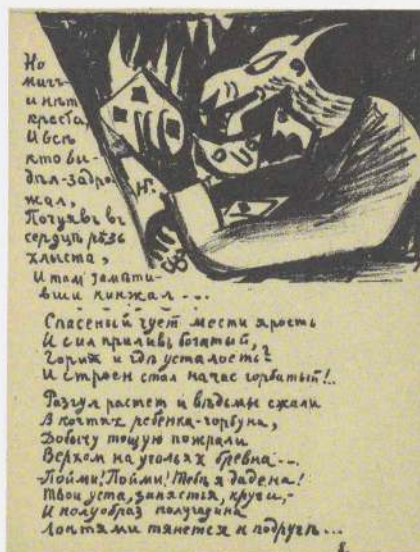 Но
мигъ-
и нѣт
креста,
И всѣ
кто ви-
дѣл-задро-
жал,
Почуявъ въ
сердцѣ рѣзь
хлыста,
И там замѣти-
вши кинжал...
НГ.
Спасеный чует мести ярость
И сил приливъ богатый,
Горит и гдѣ усталость?
И строен стал на час горбатый!..
Разгул растет и вѣдьмы сжали
В когтях ребенка-горбуна,
Добычу тощую пожрали
Верхом на угольях бревна...
-Пойми! Пойми! Тебѣ я дадена!
Твои уста, запястья, кручи,-
И полуобраз полугадина
Локтями тянется к подругѣ...
8